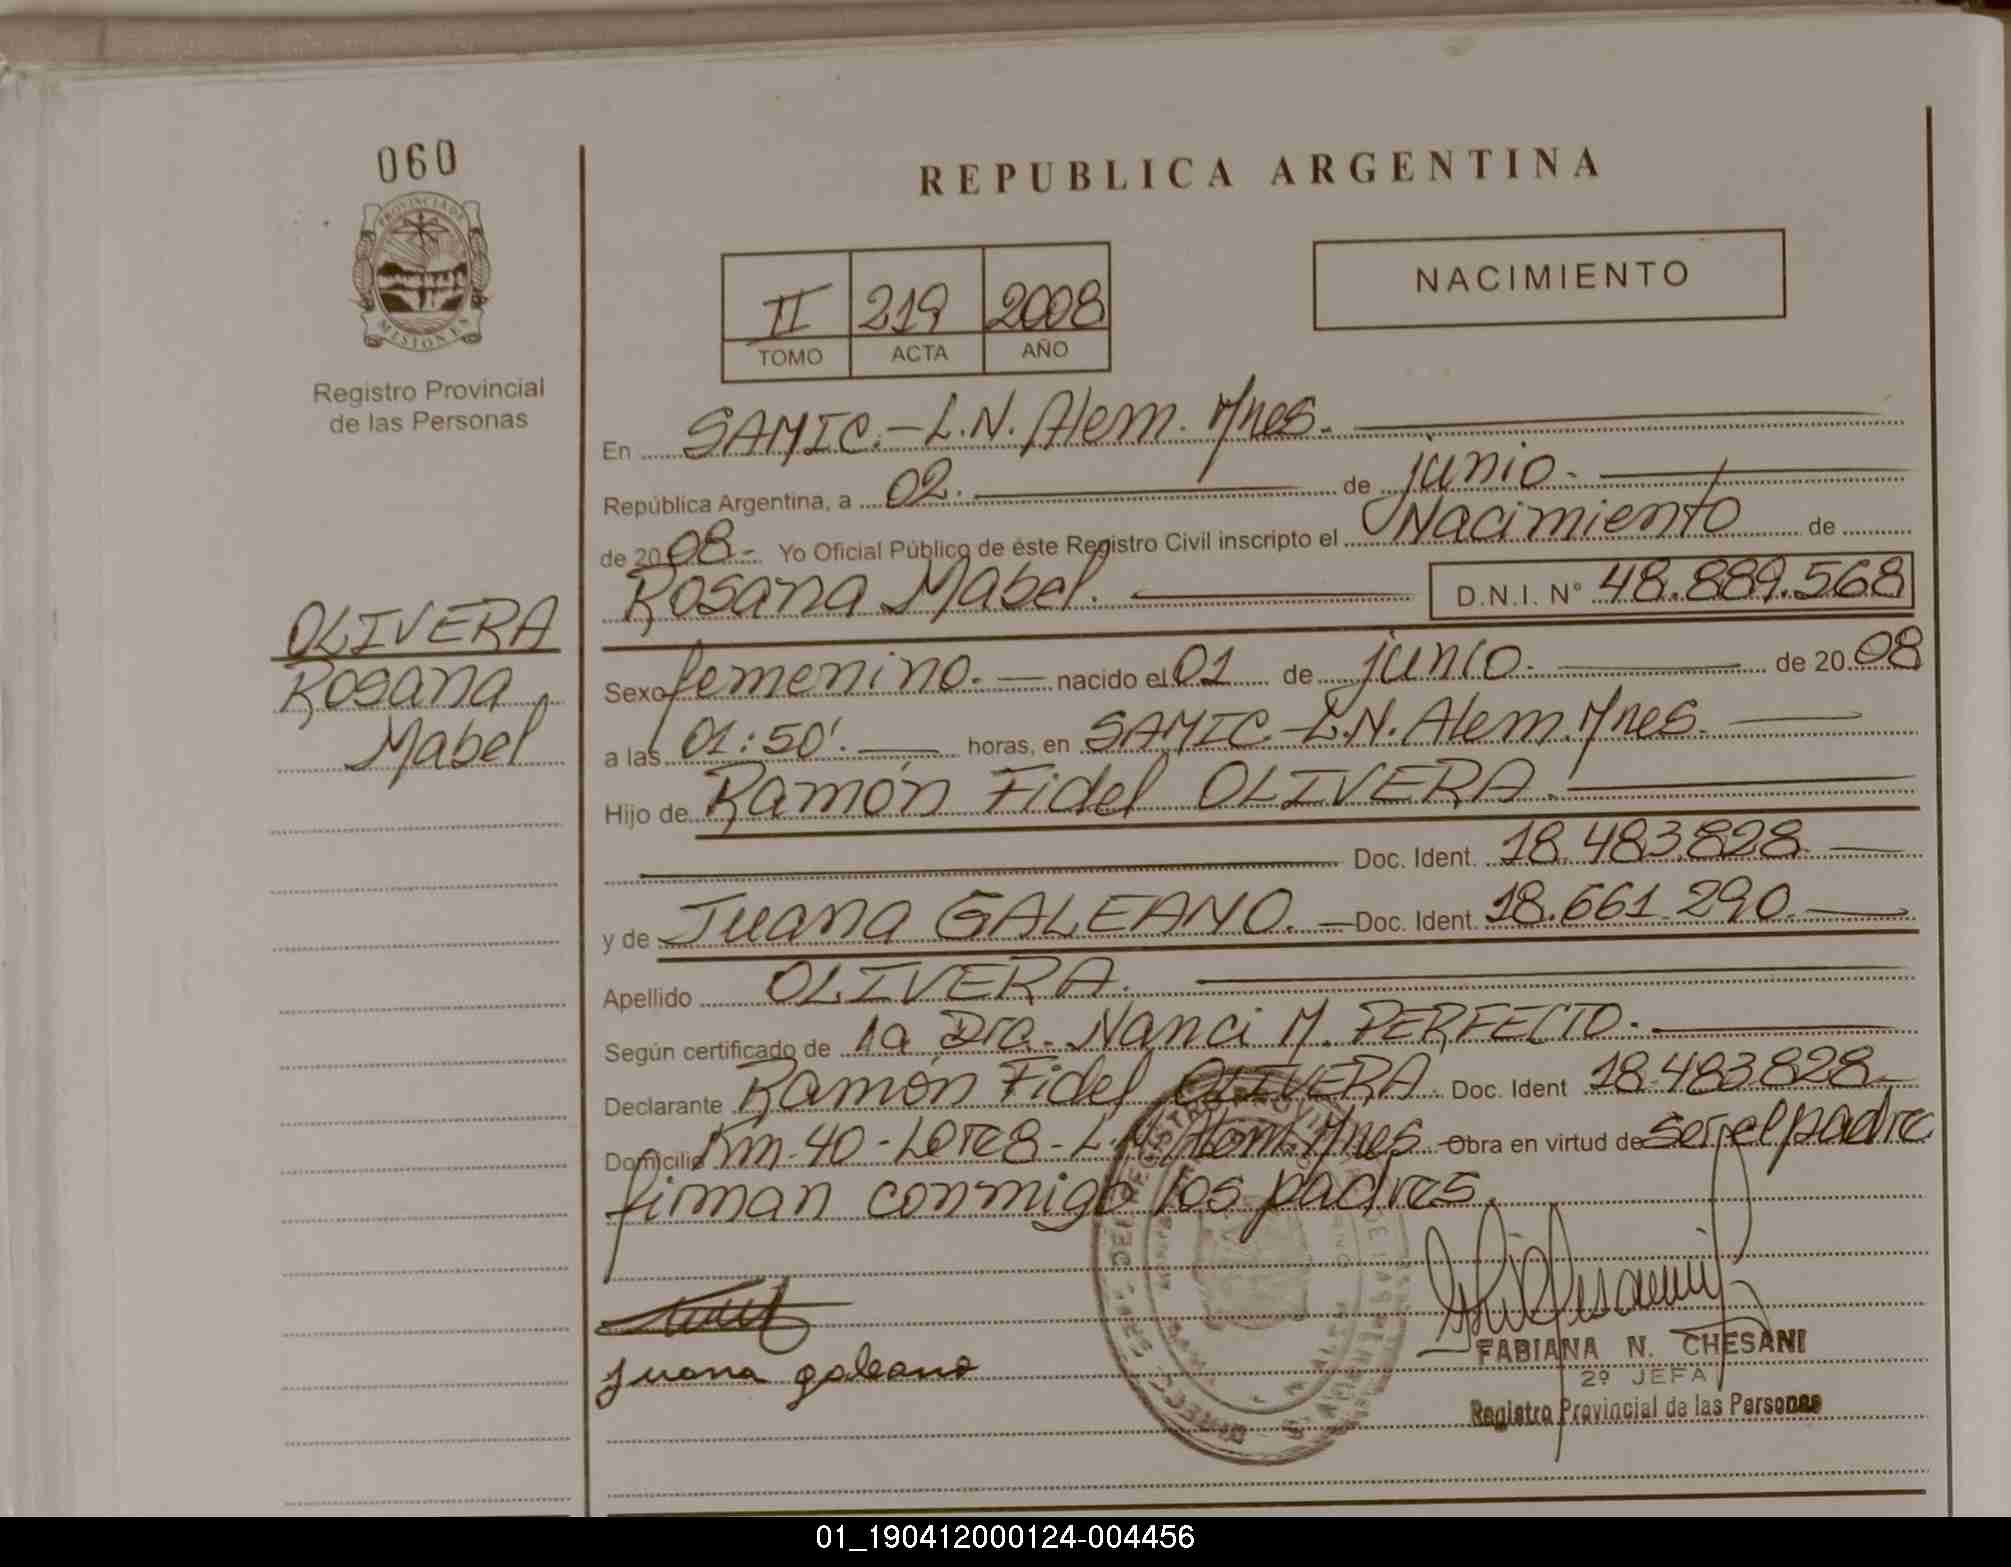 060
PROVINCIA DE
MISIONES
Registro Provincial
de las Personas
OLIVERA
Rosana
Mabel
REPUBLICA ARGENTINA
II 219 2008
TOMO ACTA AÑO
NACIMIENTO
En SAMIC.-L.N. Alem. Mnes.
República Argentina, a 02. de junio.
de 2008.- Yo Oficial Público de éste Registro Civil inscripto el Nacimiento de
Rosana Mabel. D.N.I. Nº 48.889.568
Sexo femenino. nacido el 01 de junio. de 2008
a las 01:50'. horas, en SAMIC.-L.N. Alem. Mnes.
Hijo de Ramón Fidel OLIVERA.
Doc. Ident. 18.483.828
y de Juana GALEANO. Doc. Ident. 18.661.290.
Apellido OLIVERA.
Según certificado de la Dra. Nanci M. PERFECTO.
Declarante Ramón Fidel OLIVERA. Doc. Ident 18.483828
Domicilio Km.40-Lote8-L.N. Alem. Mnes. Obra en virtud de ser el padre
firman conmigo los padres.
juana galeano
FABIANA N. CHESANI
2º JEFA
Registro Provincial de las Personas
01_190412000124-004456